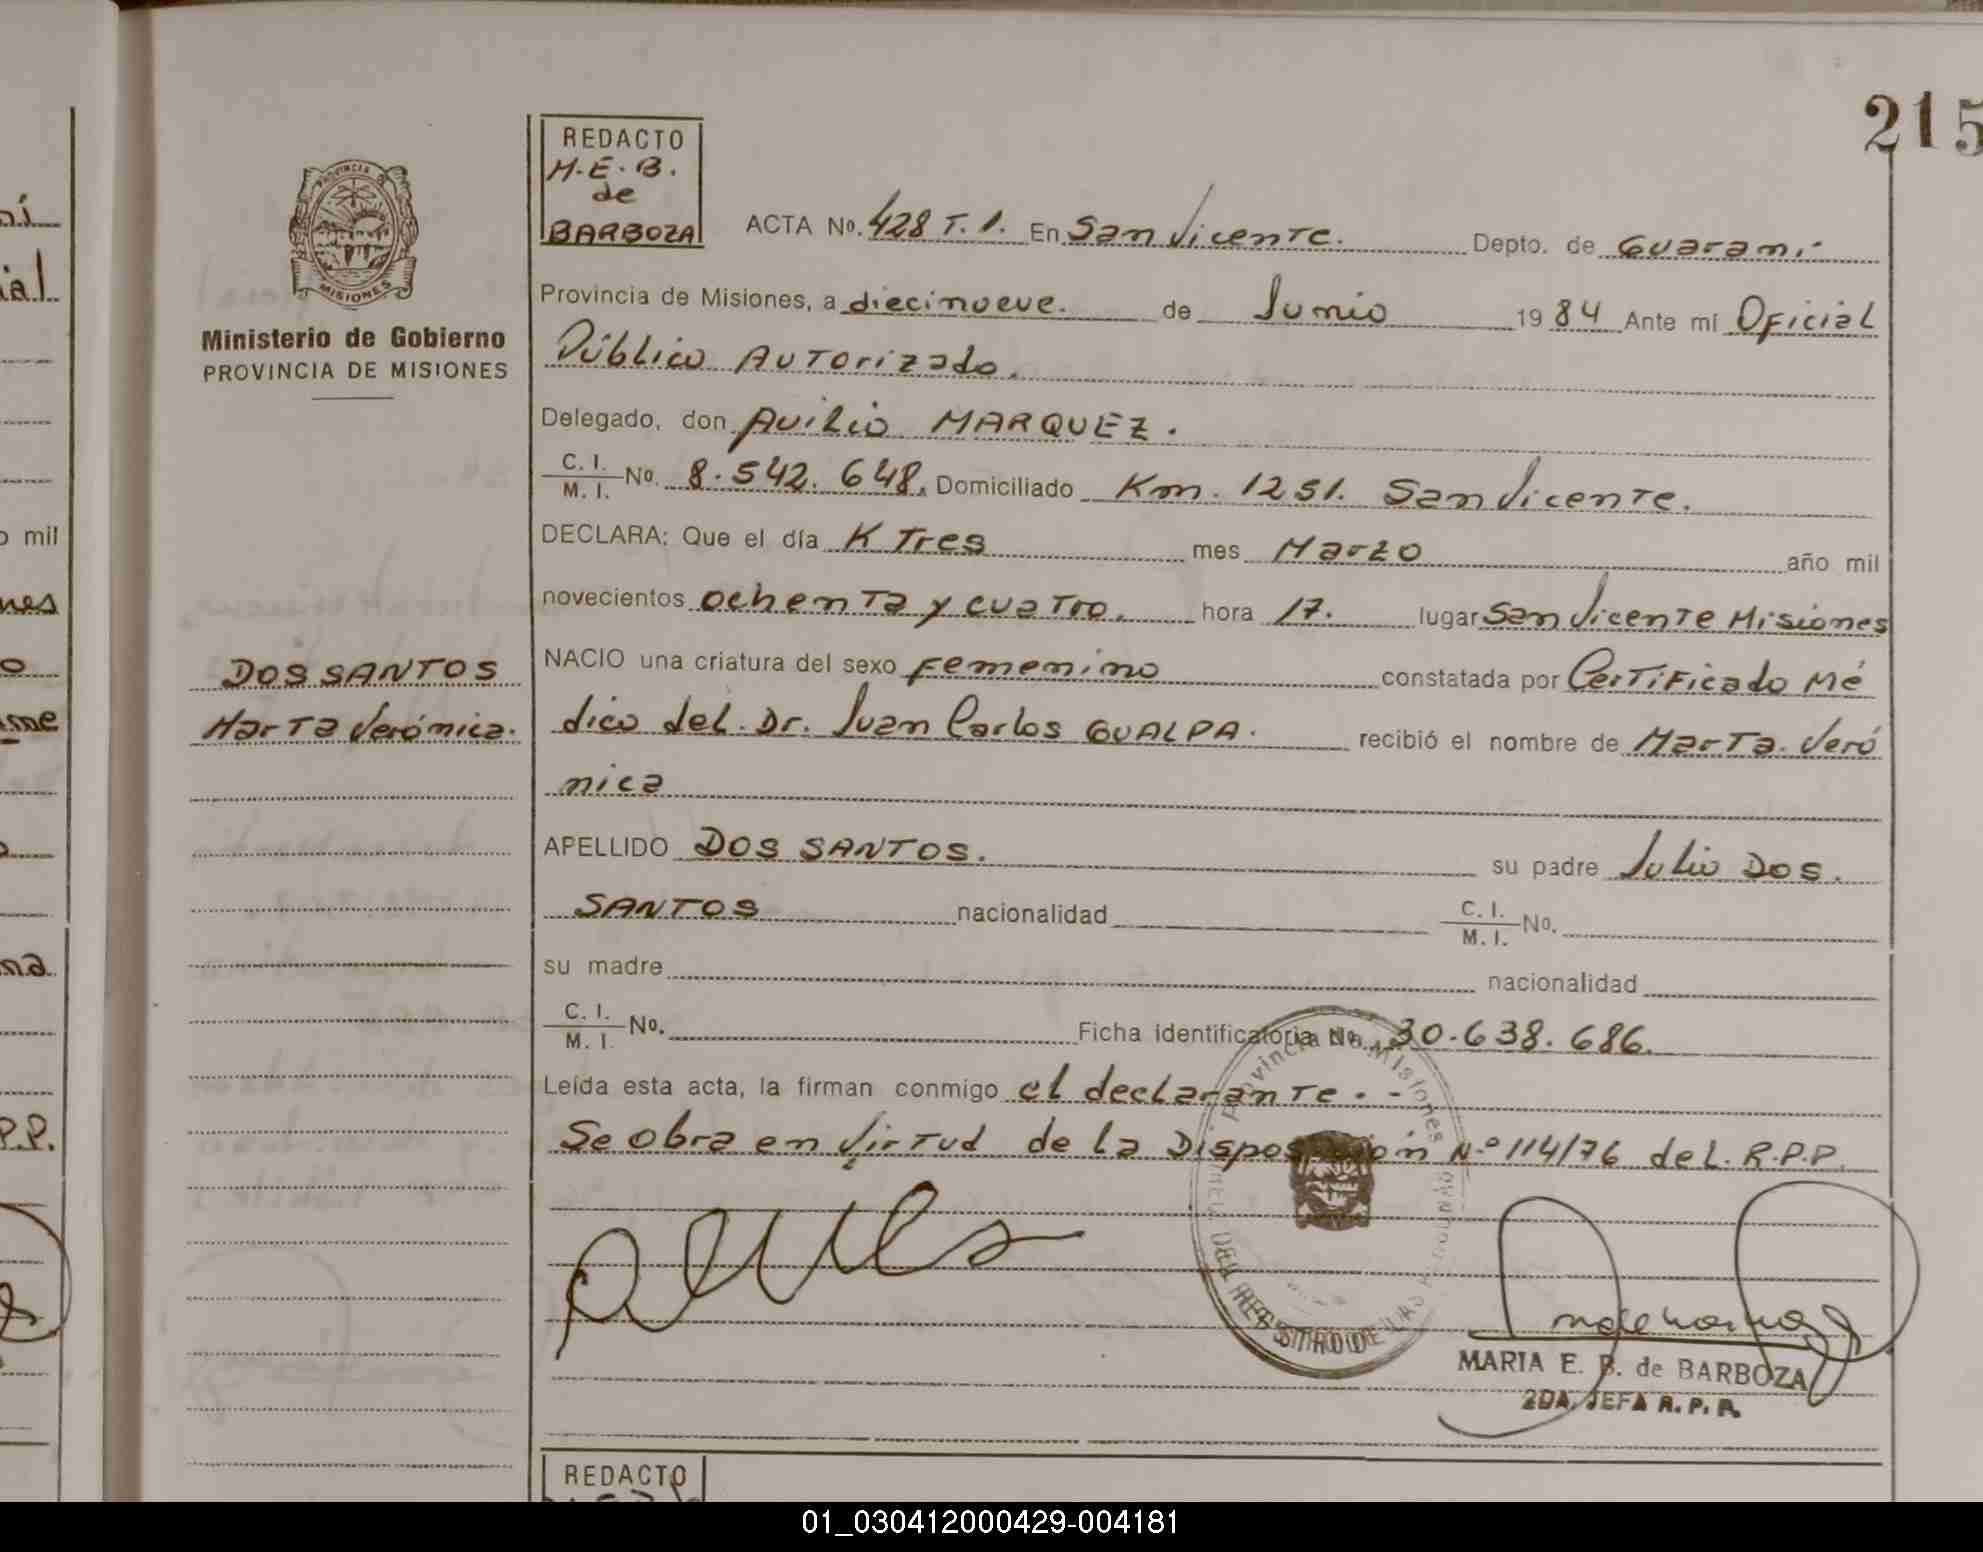 215
REDACTO
M.E.B.
de
BARBOZA
PROVINCIA DE
MISIONES
Ministerio de Gobierno
PROVINCIA DE MISIONES
ACTA No. 428 T.1. En San Vicente. Depto. de Guaraní
Provincia de Misiones, a diecinueve. de Junio 19 84 Ante mí Oficial
Público Autorizado.
Delegado, don Avilio MARQUEZ.
C. I.
M. I. No. 8.542.648. Domiciliado Km. 1251. San Vicente.
DECLARA: Que el día K Tres mes Marzo año mil
novecientos ochenta y cuatro. hora 17. lugar San Vicente Misiones
NACIO una criatura del sexo femenino constatada por Certificado Mé
DOS SANTOS
Marta Verónica.
dico del. Dr. Juan Carlos GUALPA. recibió el nombre de Marta. Veró
nica
APELLIDO DOS SANTOS. su padre Julio DOS.
SANTOS nacionalidad C. I.
M. I. No.
su madre nacionalidad
C. I.
M. I. No. Ficha identificatoria No. 30.638.686.
Leída esta acta, la firman conmigo el declarante. -
Se obra en virtud de la Disposición N.º 114/76 del. R.P.P.
Provincia de Misiones
MARIA E. B. de BARBOZA
2DA. JEFA R. P. P.
REDACTO
mil
P.P.
01_030412000429-004181